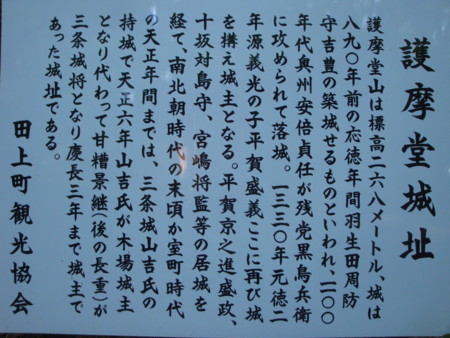 護摩堂城址
護摩堂山は標高二六八メートル、城は
八九〇年前の応徳年間羽生田周防
守吉豊の築城せるものといわれ、一一〇〇
年代奥州安倍貞任が残党黒鳥兵衛
に攻められて落城。一三三〇年元徳二
年源義光の子平賀盛義ここに再び城
を搆え城主となる。平賀京之進盛政、
十坂対島守、宮嶋将監等の居城を
経て、南北朝時代の末頃か室町時代
の天正年間までは、三条城山吉氏の
持城で天正六年山吉氏が木場城主
となり代わって甘糟景継(後の長重)が
三条城将となり慶長三年まで城主で
あった城址である。
田上町観光協会